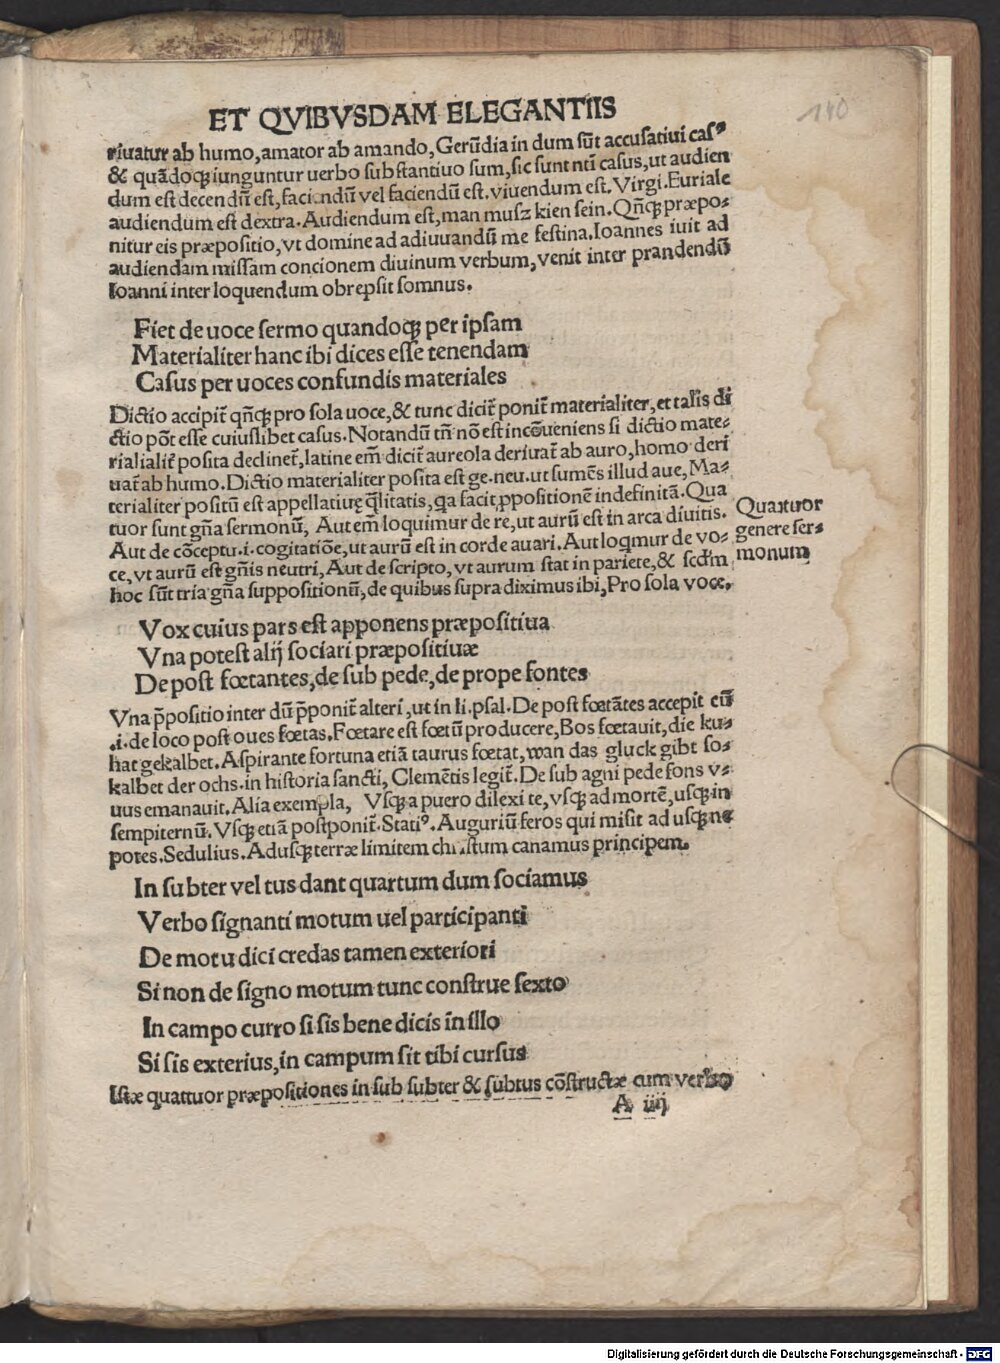 140
ET QVIBVSDAM ELEGANTIIS
riuatur ab humo, amator ab amando, Gerũdia in dum sũt accusatiui casꝰ
& quãdoqꝫ iunguntur uerbo substantiuo sum, sic sunt ntĩ casus, ut audien
dum est decendũ est, faciendũ vel faciendũ est. viuendum est. Virgi. Euriale
audiendum est dextra. Audiendum est, man musz kien sein. Qñqꝫ præpo⸗
nitur eis præpositio, vt domine ad adiuuandũ me festina. Ioannes iuit ad
audiendam missam concionem diuinum verbum, venit inter prandendũ
Ioanni inter loquendum obrepsit somnus.
Fiet de uoce sermo quandoqꝫ per ipsam
Materialiter hanc ibi dices esse tenendam
Casus per uoces confundis materiales
Dictio accipit̃ qñqꝫ pro sola uoce, & tunc dicit̃ ponit̃ materialiter, et talis di
ctio põt esse cuiuslibet casus. Notandũ tñ nõ est incõueniens si dictio mate⸗
rialialit̃ posita declinet̃, latine em̃ dicit̃ aureola deriuat̃ ab auro, homo deri
uat̃ ab humo. Dictio materialiter posita est ge. neu. ut sumẽs illud aue, Ma⸗
terialiter positũ est appellatiuę q̃litatis, qa facit ꝓpositionẽ indefinitã. Qua
tuor sunt gña sermonũ, Aut em̃ loquimur de re, ut aurũ est in arca diuitis.
Aut de cõceptu .i. cogitatiõe, ut aurũ est in corde auari. Aut loqmur de vo⸗
ce, vt aurũ est gñis neutri, Aut de scripto, vt aurum stat in pariete, & scd̃m
hoc sũt tria gña suppositionũ, de quibus supra diximus ibi, Pro sola voce.
Quatuor
genere ser⸗
monum
Vox cuius pars est apponens præpositiua
Vna potest alij sociari præpositiuæ
De post fœtantes, de sub pede, de prope fontes
Vna p̃positio inter dũ p̃ponit̃ alteri, ut in li. psal. De post fœtãtes accepit eũ
.i. de loco post oues fœtas. Fœtare est fœtũ producere, Bos fœtauit, die ku⸗
hat gekalbet. Aspirante fortuna etiã taurus fœtat, wan das gluck gibt so⸗
kalbet der ochs. in historia sancti, Clemẽtis legit̃. De sub agni pede fons v⸗
uus emanauit. Alia exempla, Vsqꝫ a puero dilexi te, vsqꝫ ad mortẽ, usqꝫ in
sempiternũ. Vsqꝫ etiã postponit̃. Statiꝰ. Auguriũ feros qui misit ad usqꝫ ne
potes. Sedulius. Adusqꝫ terræ limitem christum canamus principem.
In subter vel tus dant quartum dum sociamus
Verbo signanti motum uel participanti
De motu dici credas tamen exteriori
Si non de signo motum tunc construe sexto
In campo curro si sis bene dicis in illo
Si sis exterius, in campum sit tibi cursus
Istæ quattuor præpositiones in sub subter & subtus cõstructæ cum verbo
A iiij
Digitalisierung gefördert durch die Deutsche Forschungsgemeinschaft - DFG